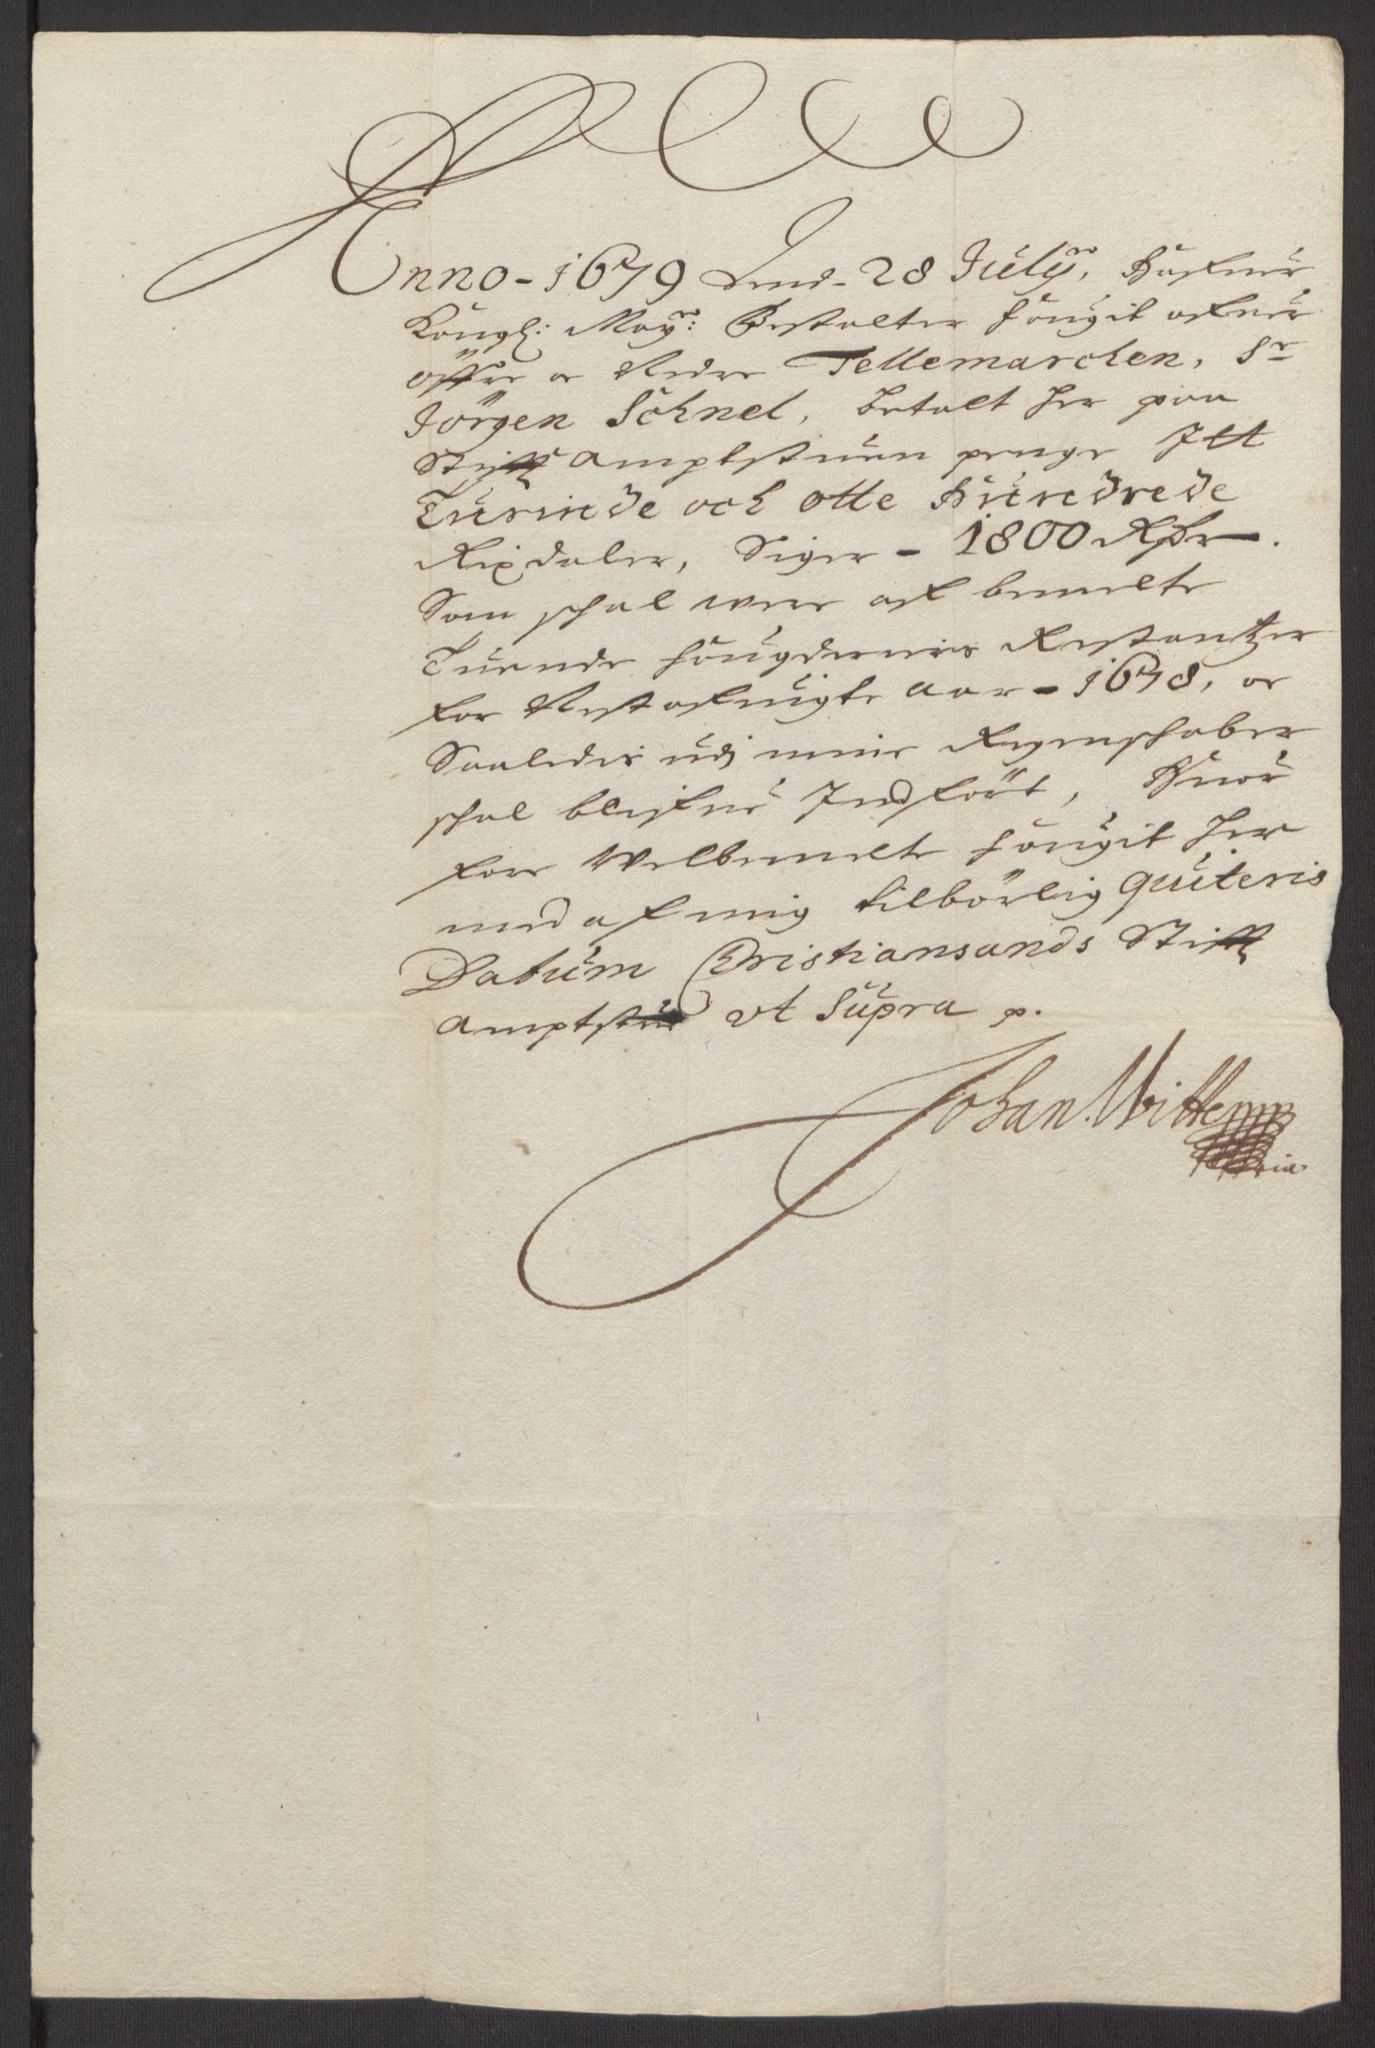 Anno - 1679 dend - 28 Julÿ, Hafuer
Kongl: Mayᵗˢ: Bestalter fougit ofuer
öffre oc Nedre Tellemarchen, Sr
Jörgen Schnel, betalt her paa
Stiffts Amptstuen penge Itt
Tusinde och otte Hundrede
Rixdaler, Siger - 1800 Rdr.
Som schal were af bemelte
Fougderiers Restantzer
for Nest afuigte Aar - 1678, oc
Saaledis udj mine Regenschaber
schal blifue Indfört, Huor
fore Welbemelte fougit her
med af mig tilbörlig quiteris
Datum Christiansands Stiffts
Amptstue ut Supra p.
Johan Witte mp
ria